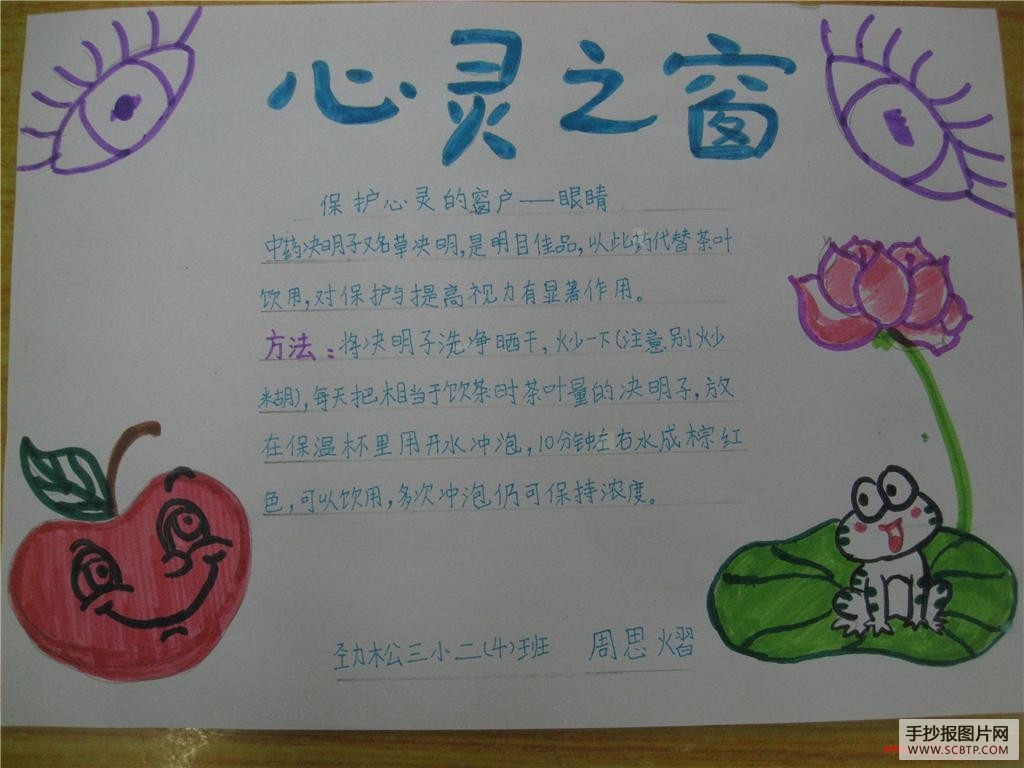 心灵之窗
保护心灵的窗户——眼睛
中药决明子又名草决明,是明目佳品,以此药代替茶叶
饮用,对保护与提高视力有显著作用。
方法:将决明子洗净晒干,炒一下(注意别炒
糊),每天把相当于饮茶时茶叶量的决明子,放
在保温杯里用开水冲泡,10分钟左右水成棕红
色,可以饮用,多次冲泡仍可保持浓度。
劲松三小二(4)班 周思熠
手抄报图片网
WWW.SCBTP.COM